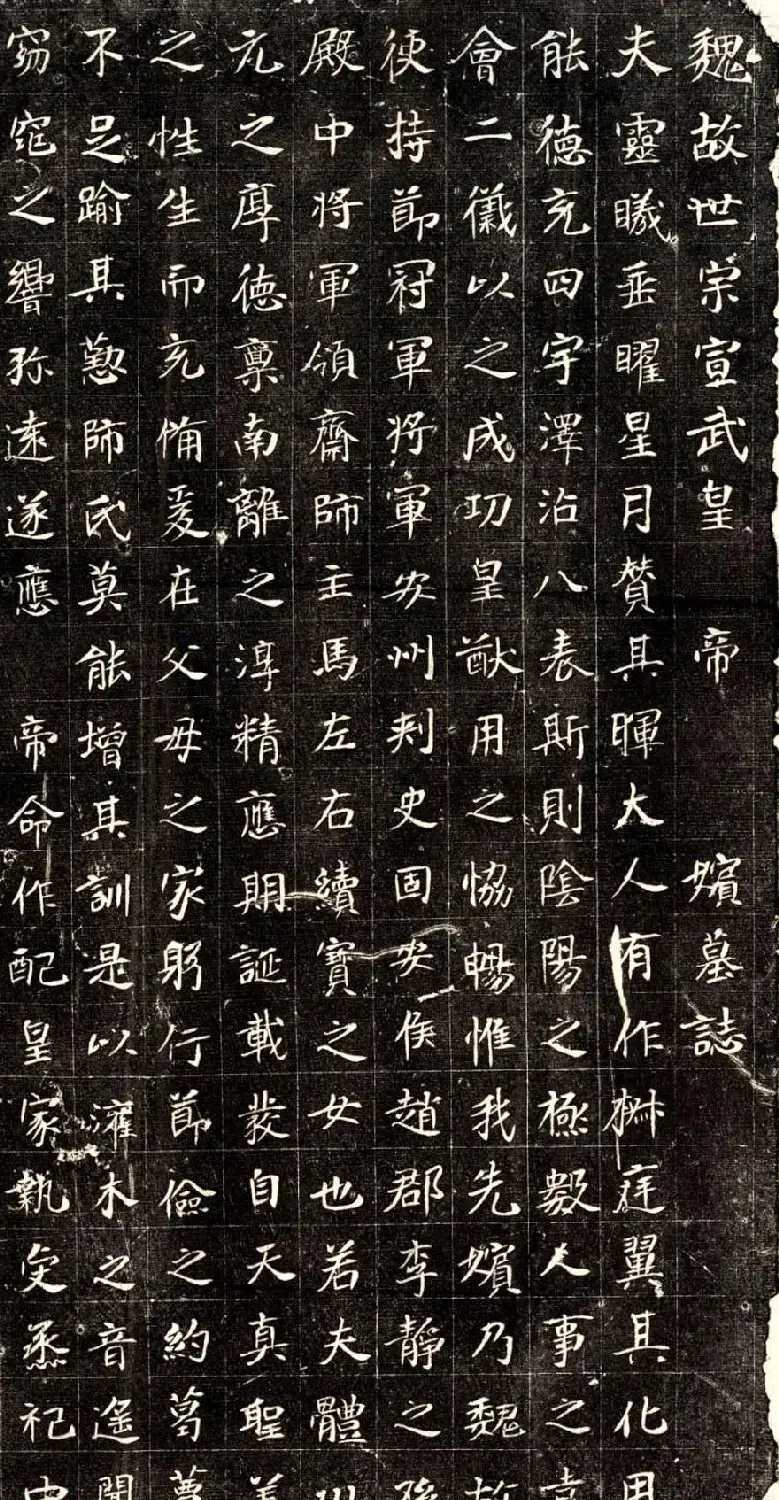 魏故世宗宣武皇帝嬪墓誌
夫靈曦垂曜星月贊其暉大人有作椒庭翼其化用
能德充四宇澤沾八表斯則陰陽之極數人事之
會二儀以之成功皇猷用之恊暢惟我先嬪乃魏故
使持節冠軍將軍安州刺史固安侯趙郡李靜之孫
殿中將軍領齋師主馬左右續寶之女也若夫體
元之厚德稟南離之淳精應期誕載發自天真聖善
之性生而充備爰在父母之家躬行節儉之約葛蕈
不足踰其懃師氏莫能增其訓是以灌木之音遥聞
窈窕之響弥遠遂應帝命作配皇家執虔烝祀中